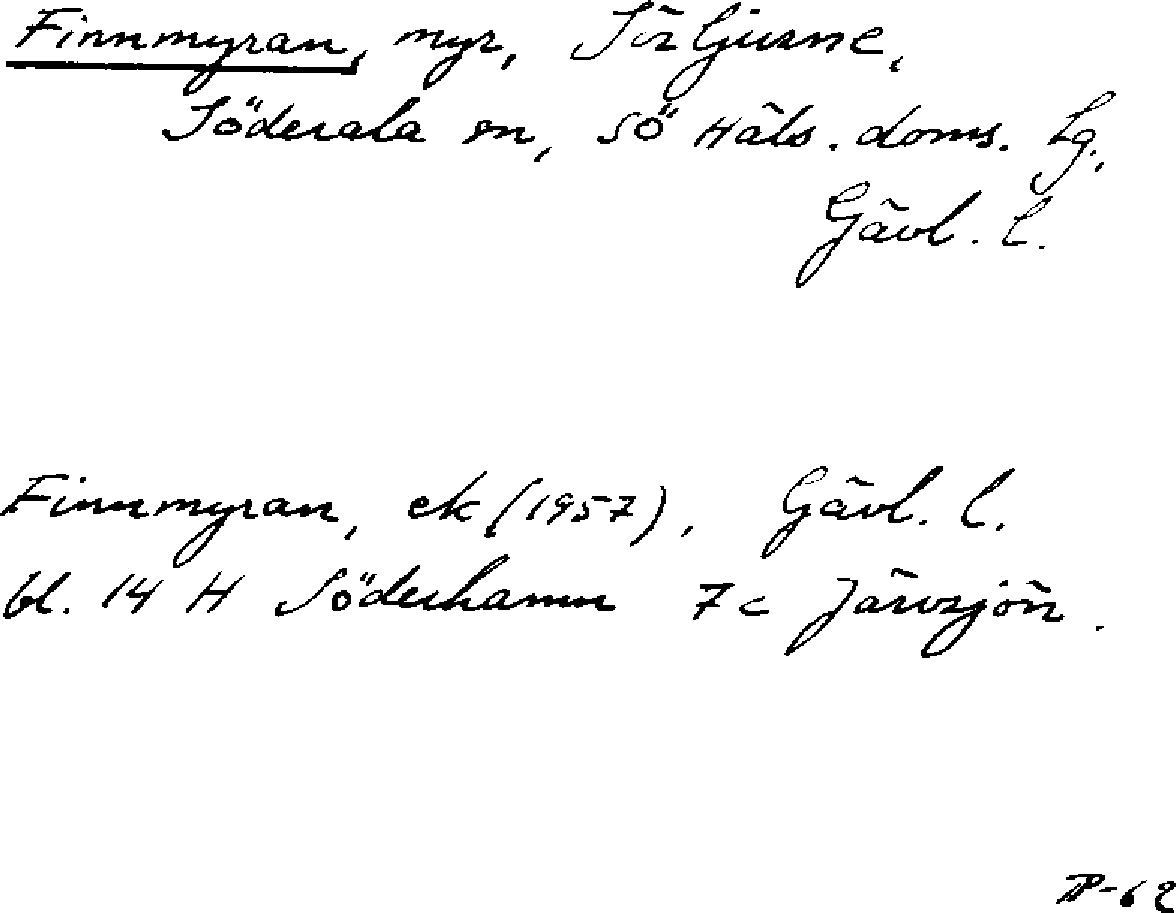 Finnmyran, myr, Sörljusne,
Söderala sn, SÖ Häls. doms. Lg.,
Gävl. l.
Finnmyran, ek (1957), Gävl. l.
bl. 14 H Söderhamn 7 c Järvsjön.
-62